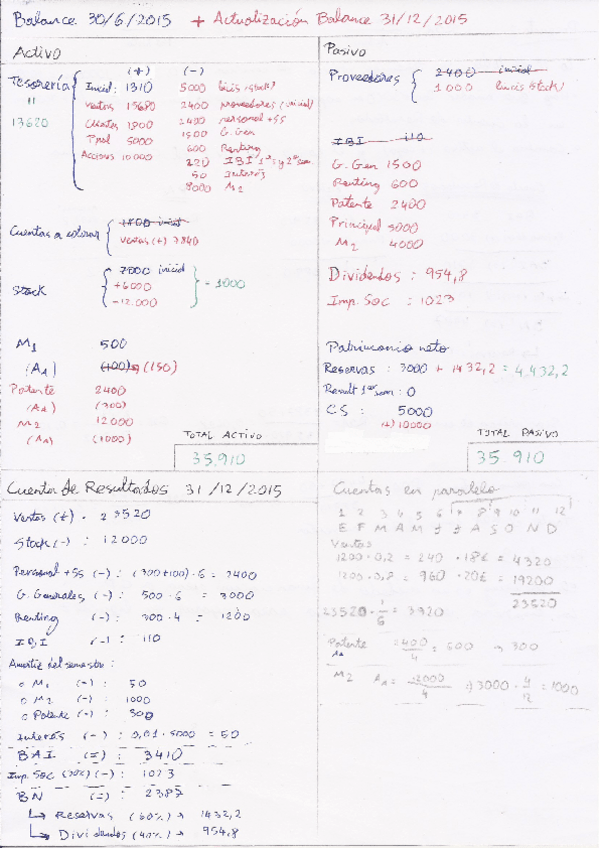 Balance 30/6/2015 + Actualización Balance 31/12/2015
Activo
(+) (-)
Tesorería Inicial: 1310 5000 (inic. stock)
" Ventas 15680 2400 proveedores (inicial)
13620 Clientes 1800 2400 personal + SS
Ppal 5000 1500 G. Gen
Acciones 10000 600 Renting
220 IBI 1º s y 2º sem.
50 Interés
8000 M2
Cuentas a cobrar 1800 inicial
Ventas (+) 7840
Stock 7000 inicial = 1000
+6000
-12.000
M1 500
(A1) (100) (150)
Patente 2400
(AA) (300)
M2 12000
(AA) (1000)
TOTAL ACTIVO
35.910
Pasivo
Proveedores 2400 inicial
1000 (inic stock)
IBI 110
G. Gen 1500
Renting 600
Patente 2400
Principal 5000
M2 4000
Dividendos : 954,8
Imp. Soc : 1023
Patrimonio neto
Reservas : 3000 + 1432,2 = 4.432,2
Result 1er sem : 0
CS : 5000
(+) 10000
TOTAL PASIVO
35.910
Cuenta de Resultados 31/12/2015
Ventas (+) . 23520
Stock (-) : 12000
Personal + SS (-) : (300+100) · 6 = 2400
G. Generales (-) : 500 · 6 = 3000
Renting (-) : 300 · 4 = 1200
IBI (-) : 110
Amortiz del semestre :
o M1 (-) : 50
o M2 (-) : 1000
o Patente (-) : 300
Interés (-) : 0,01 · 5000 = 50
BAI (=) : 3410
Imp. Soc (30%) (-) : 1023
BN (=) : 2387
↳ Reservas (60%) → 1432,2
↳ Dividendos (40%) → 954,8
Cuentas en paralelo
1 2 3 4 5 6 7 8 9 10 11 12
E F M A M J J A S O N D
Ventas
1200 · 0,2 = 240 · 18€ = 4320
1200 · 0,8 = 960 · 20€ = 19200
23520
23520 · 1/6 = 3920
Patente = 2400/4 = 600 → 300
AA
M2 AA = 12000/4 → 3000 · 4/12 = 1000